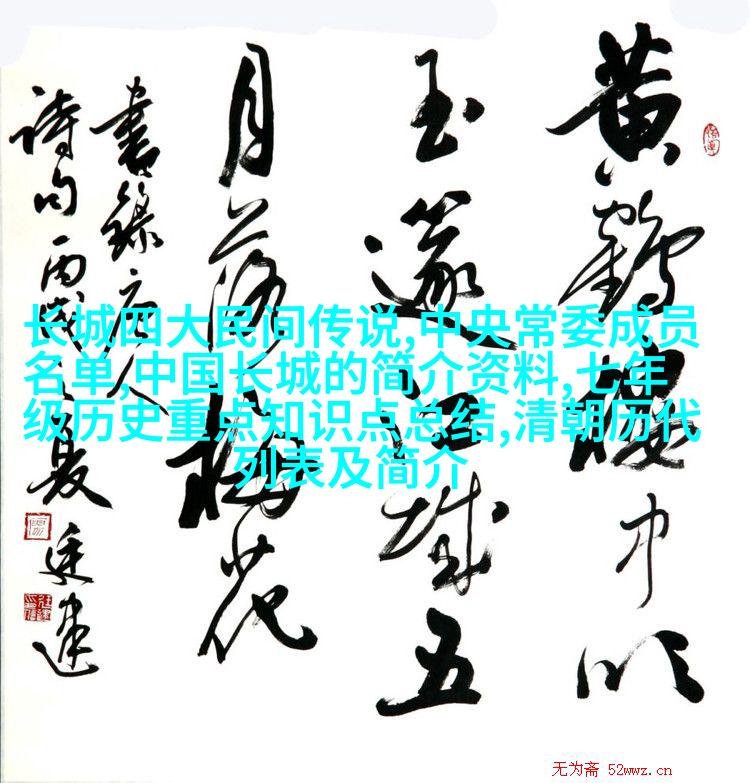 黄鶴樓中吹
玉篴江城五
月落梅花
書錄唐人
詩句丙戌夏廷建
长城四大民间传说,中央常委成员
名单,中国长城的简介资料,七年
级历史重点知识点总结,清朝历代
列表及简介
无为斋 52wwz.cn